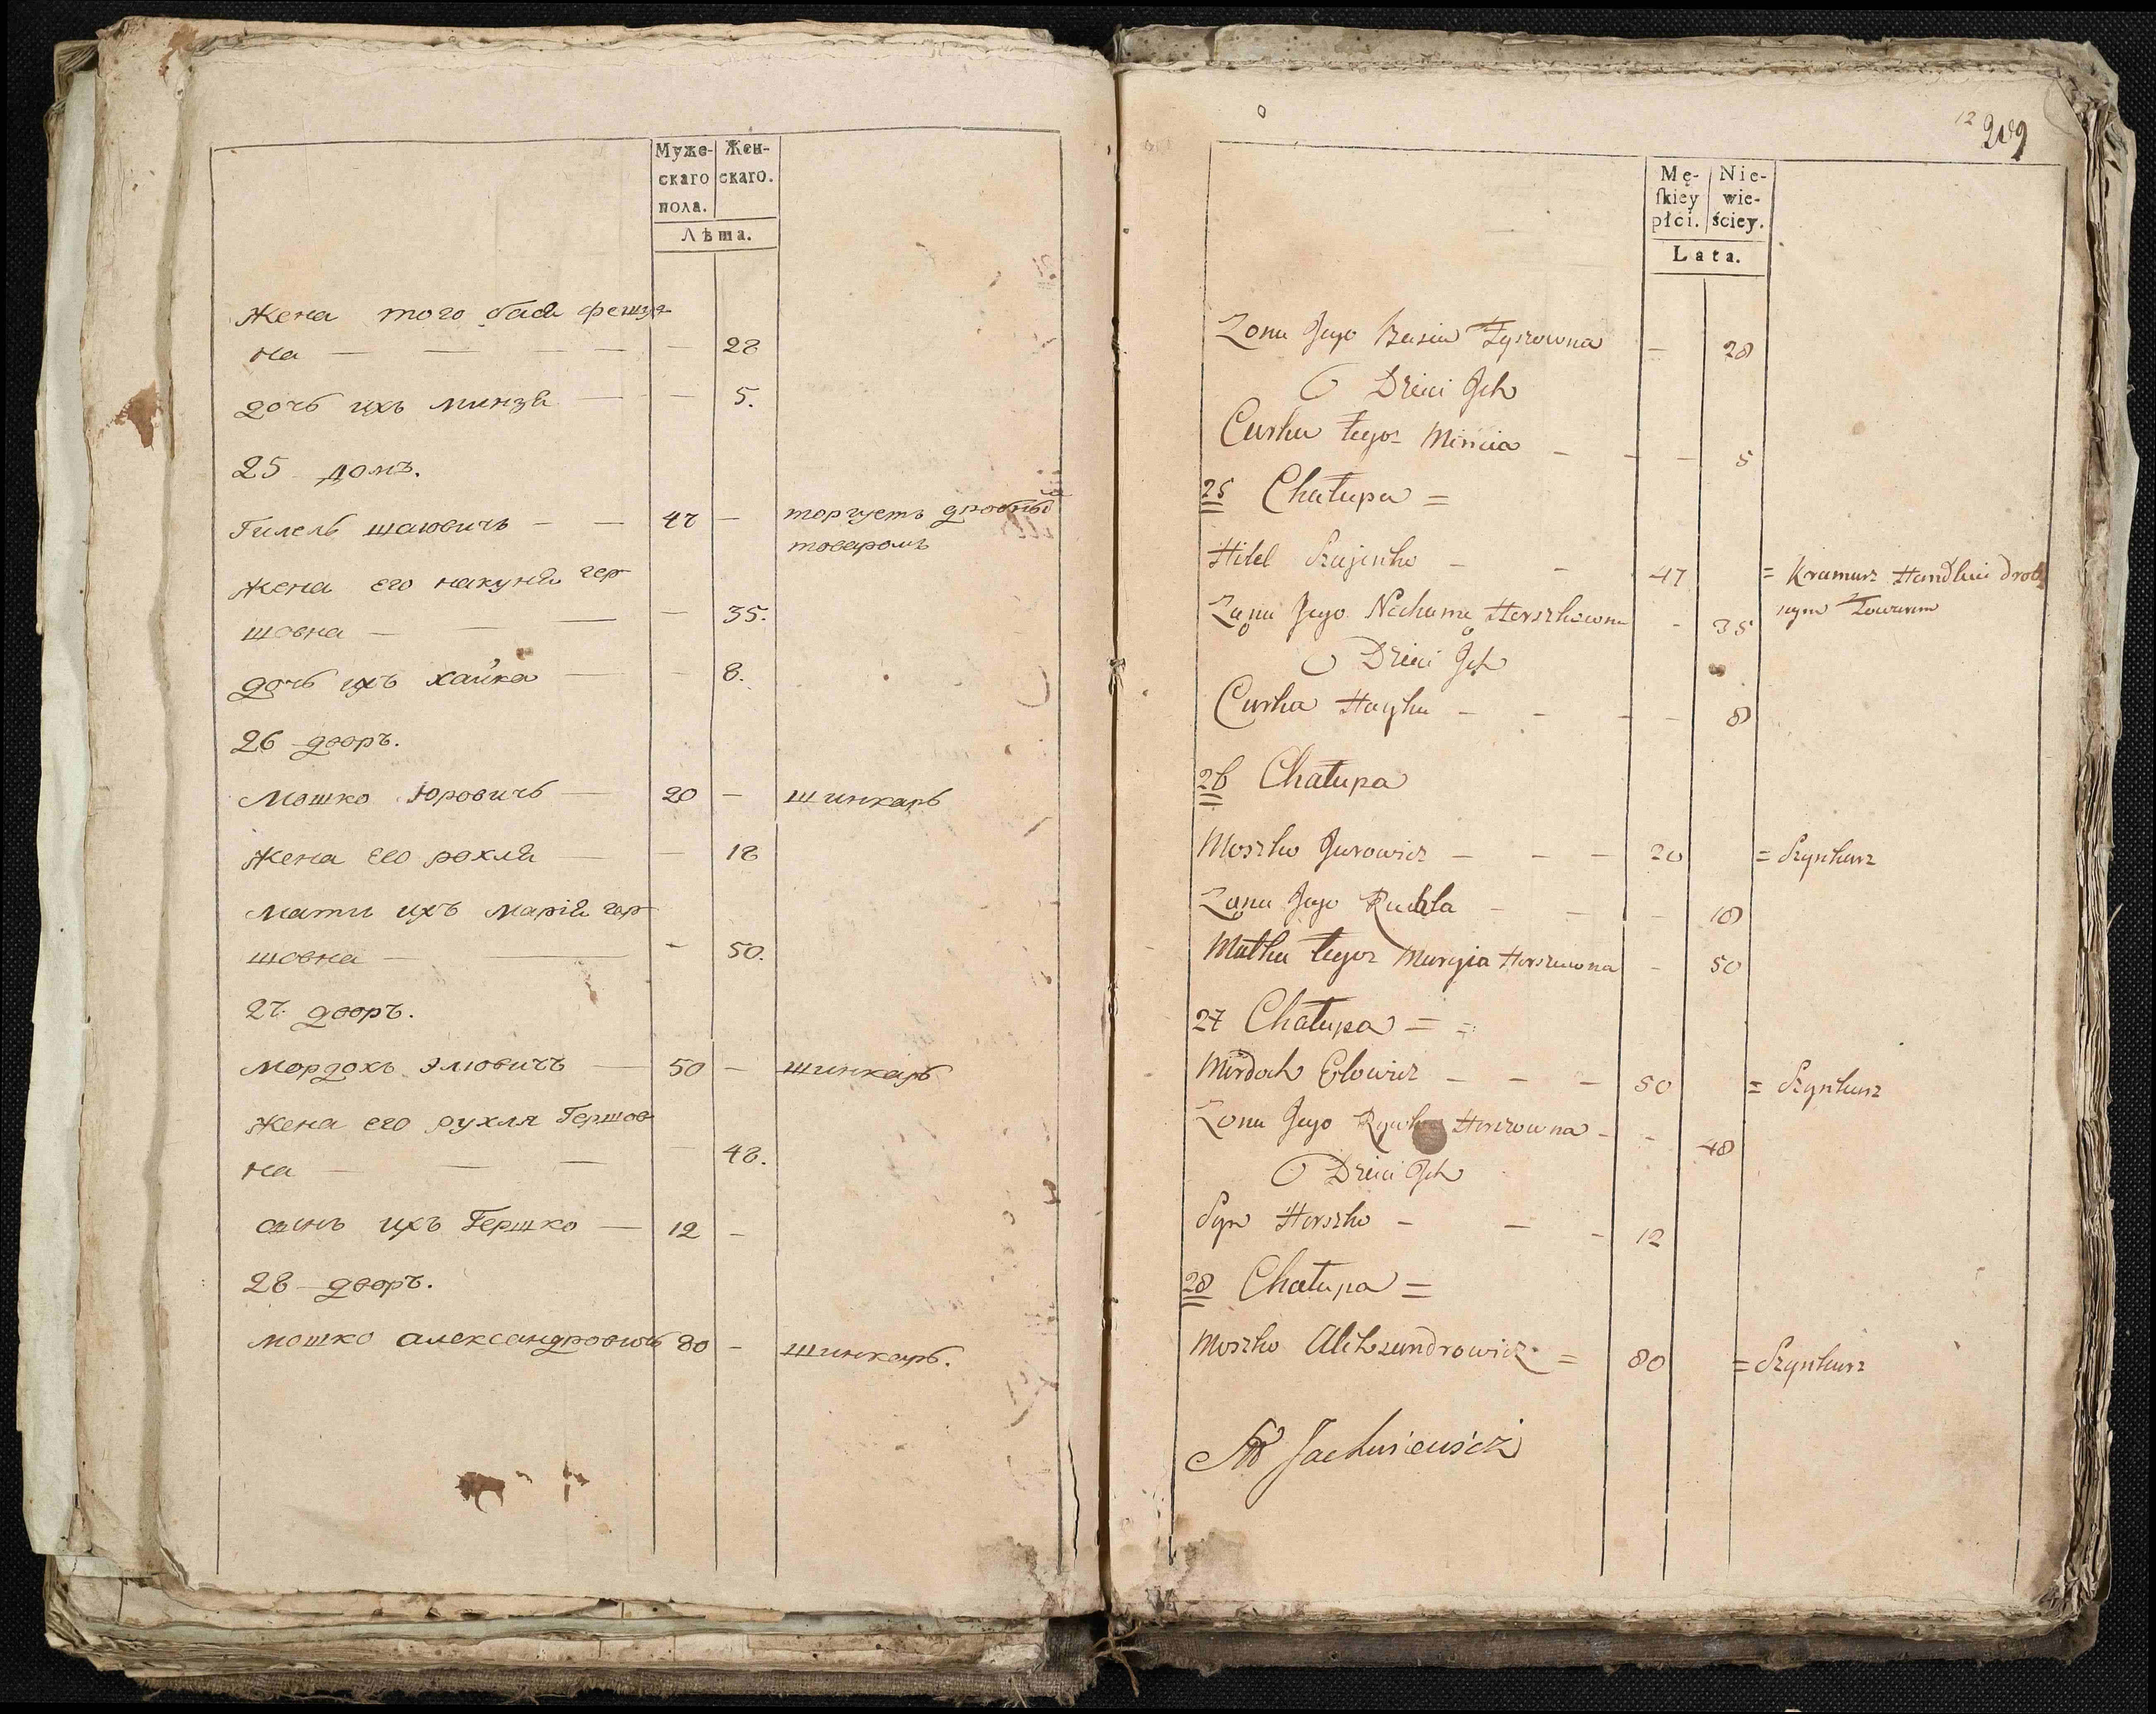 Муже-
скаго
пола.
Жен-
скаго.
Лѣта.
Жена того бася
на — — — — — 28
дочь ихъ минзя — — 5.
25 домъ.
Гилель шаювичъ — — 47 — торгуетъ дробны
товаромъ
жена его нахуня гер
шовна — — — — 35.
дочь ихъ хайка — — 8.
26 дворъ.
Мошко Юровичь — 20 — шинкарь
жена его рохля — — 18
мати ихъ марiя гер
шовна — — — 50.
27. дворъ.
мордохъ элювичъ — 50 — шинкарь
жена его рухля Гершов
на — — — 48.
сынъ ихъ Гершко — 12 —
28 дворъ.
мошко александровичь 80 — шинкарь.
12
209
Mę-
ſkiey
płci.
Nie-
wie-
ściey.
Lata.
Zona Jego Basia — 28
Dzieci Ich
Curka tegoz Mincia — — — 5
25 Chałupa =
Hilel Szajewicz — — 47 = Kramarz Handluie drob
nym Towarem
Zona Jego Nechama Herszkowna — 35
Dzieci Ich
Curka Hayka — — — — 8
26 Chałupa
Moszko Jurowicz — — — 20 = Szynkarz
Zona Jego Ruchla — — — 18
Matka tegoz Maryia Herszowna — 50
27 Chałupa = =
Mordoch Elowicz — — — 50 = Szynkarz
Zona Jego Herszowna — — 48
Dzieci Ich
Syn Herszko — — — 12
28 Chałupa =
Moszko Alekzandrowicz = 80 = Szynkarz